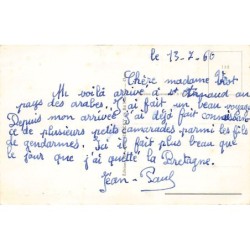 le 13-2-60
Chère madame
Me voilà arrivé à St Arnaud au
pays des arabes. J'ai fait un beau voyage
Depuis mon arrivée j'ai déjà fait connaissan
ce de plusieurs petits camarades parmi les fils
de gendarmes. Ici il fait plus beau que
le jour que j'ai quitté la Bretagne.
Jean-Paul